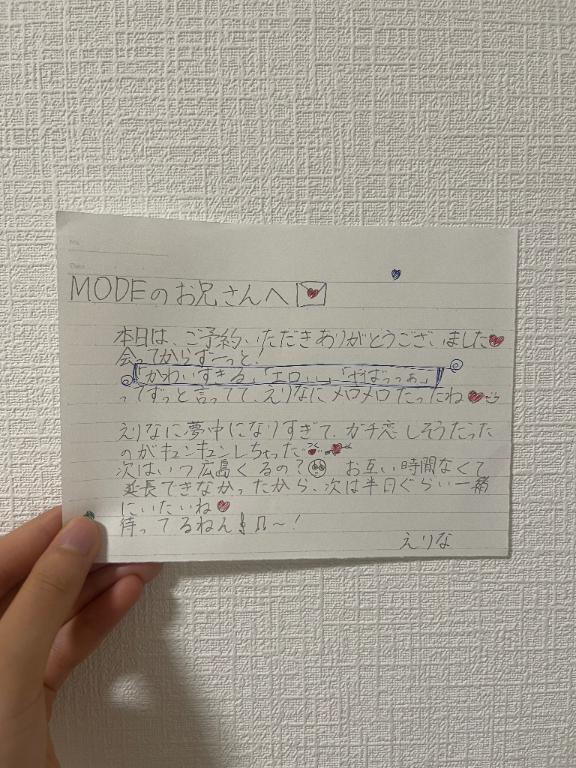 No.
Date
MODEのお兄さんへ
本日は、ご予約いただきありがとうございました
会ってからずーっと!
「かわいすぎる」「エロい」「やばっっぁ」
ってずっと言ってて、えりなにメロメロだったね
えりなに夢中になりすぎて、ガチ恋しそうだった
のがキュンキュンしちゃった
次はいつ広島くるの? お互い時間なくて
延長できなかったから、次は半日ぐらい一緒
にいたいね
待ってるねん♩♫〜!
えりな